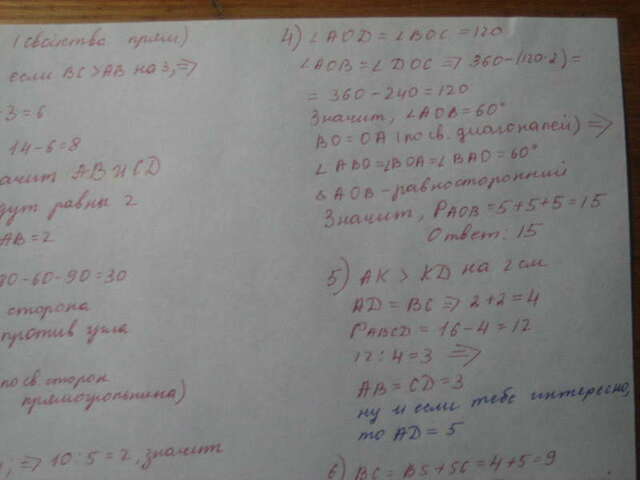 (свойства прям)
если BC > AB на 3, ⇒
3 = 6
14 - 6 = 8
значит AB и CD
дут равны 2
AB = 2
80 - 60 - 90 = 30
сторона
против угла
по св. сторон
прямоугольника)
; ⇒ 10 : 5 = 2, значит
4) ∠AOD = ∠BOC = 120
∠AOB = ∠DOC ⇒ 360 - (120·2) =
= 360 - 240 = 120
Значит, ∠AOB = 60°
BO = OA (по св. диагоналей) ⇒
∠ABO = ∠BOA = ∠BAO = 60°
AOB - равносторонний
Значит, P AOB = 5 + 5 + 5 = 15
Ответ: 15
5) AK > KD на 2 см
AD = BC ⇒ 2 + 2 = 4
P ABCD = 16 - 4 = 12
12 : 4 = 3 ⇒
AB = CD = 3
ну и если тебе интересно,
то AD = 5
6) BC = BS + SC = 4 + 5 = 9